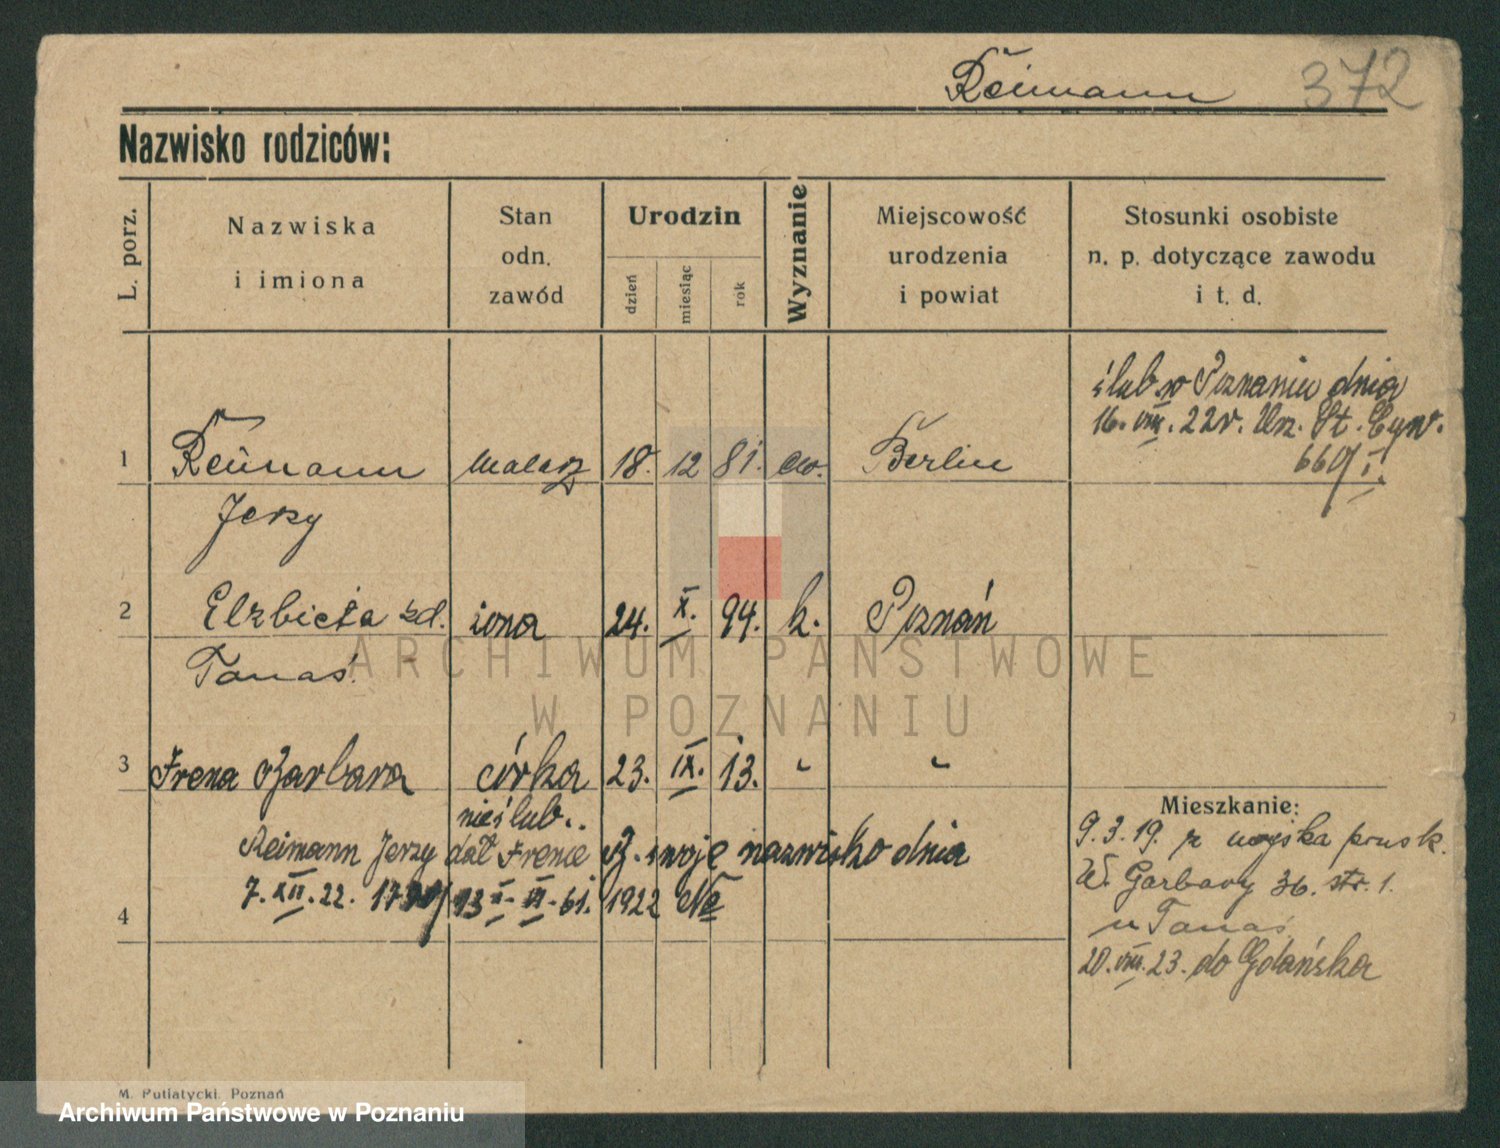 Reimann 372
Nazwisko rodziców:
L. porz.
Nazwiska
i imiona
Stan
odn.
zawód
Urodzin
dzień
miesiąc
rok
Wyznanie
Miejscowość
urodzenia
i powiat
Stosunki osobiste
n. p. dotyczące zawodu
i t. d.
ślub w Poznaniu dnia
16. VIII. 22 r. Urz. St. Cyw.
1 Reimann malarz 18. 12 81. ew. Berlin
Jerzy
2 Elżbieta zd. żona 24. X. 94. k. Poznań
Tanaś
3 Irena Barbara córka 23. IX. 13. " "
nieślub..
Reimann Jerzy dał Irenie B. swoje nazwisko dnia
7. XII. 22.
1922
4
Mieszkanie:
9. 3. 19. z wojska prusk.
W. Garbary 36. str. 1.
u Tanaś
20. VIII. 23. do Gdańska
M. Putiatycki, Poznań
ARCHIWUM PAŃSTWOWE
W POZNANIU
Archiwum Państwowe w Poznaniu